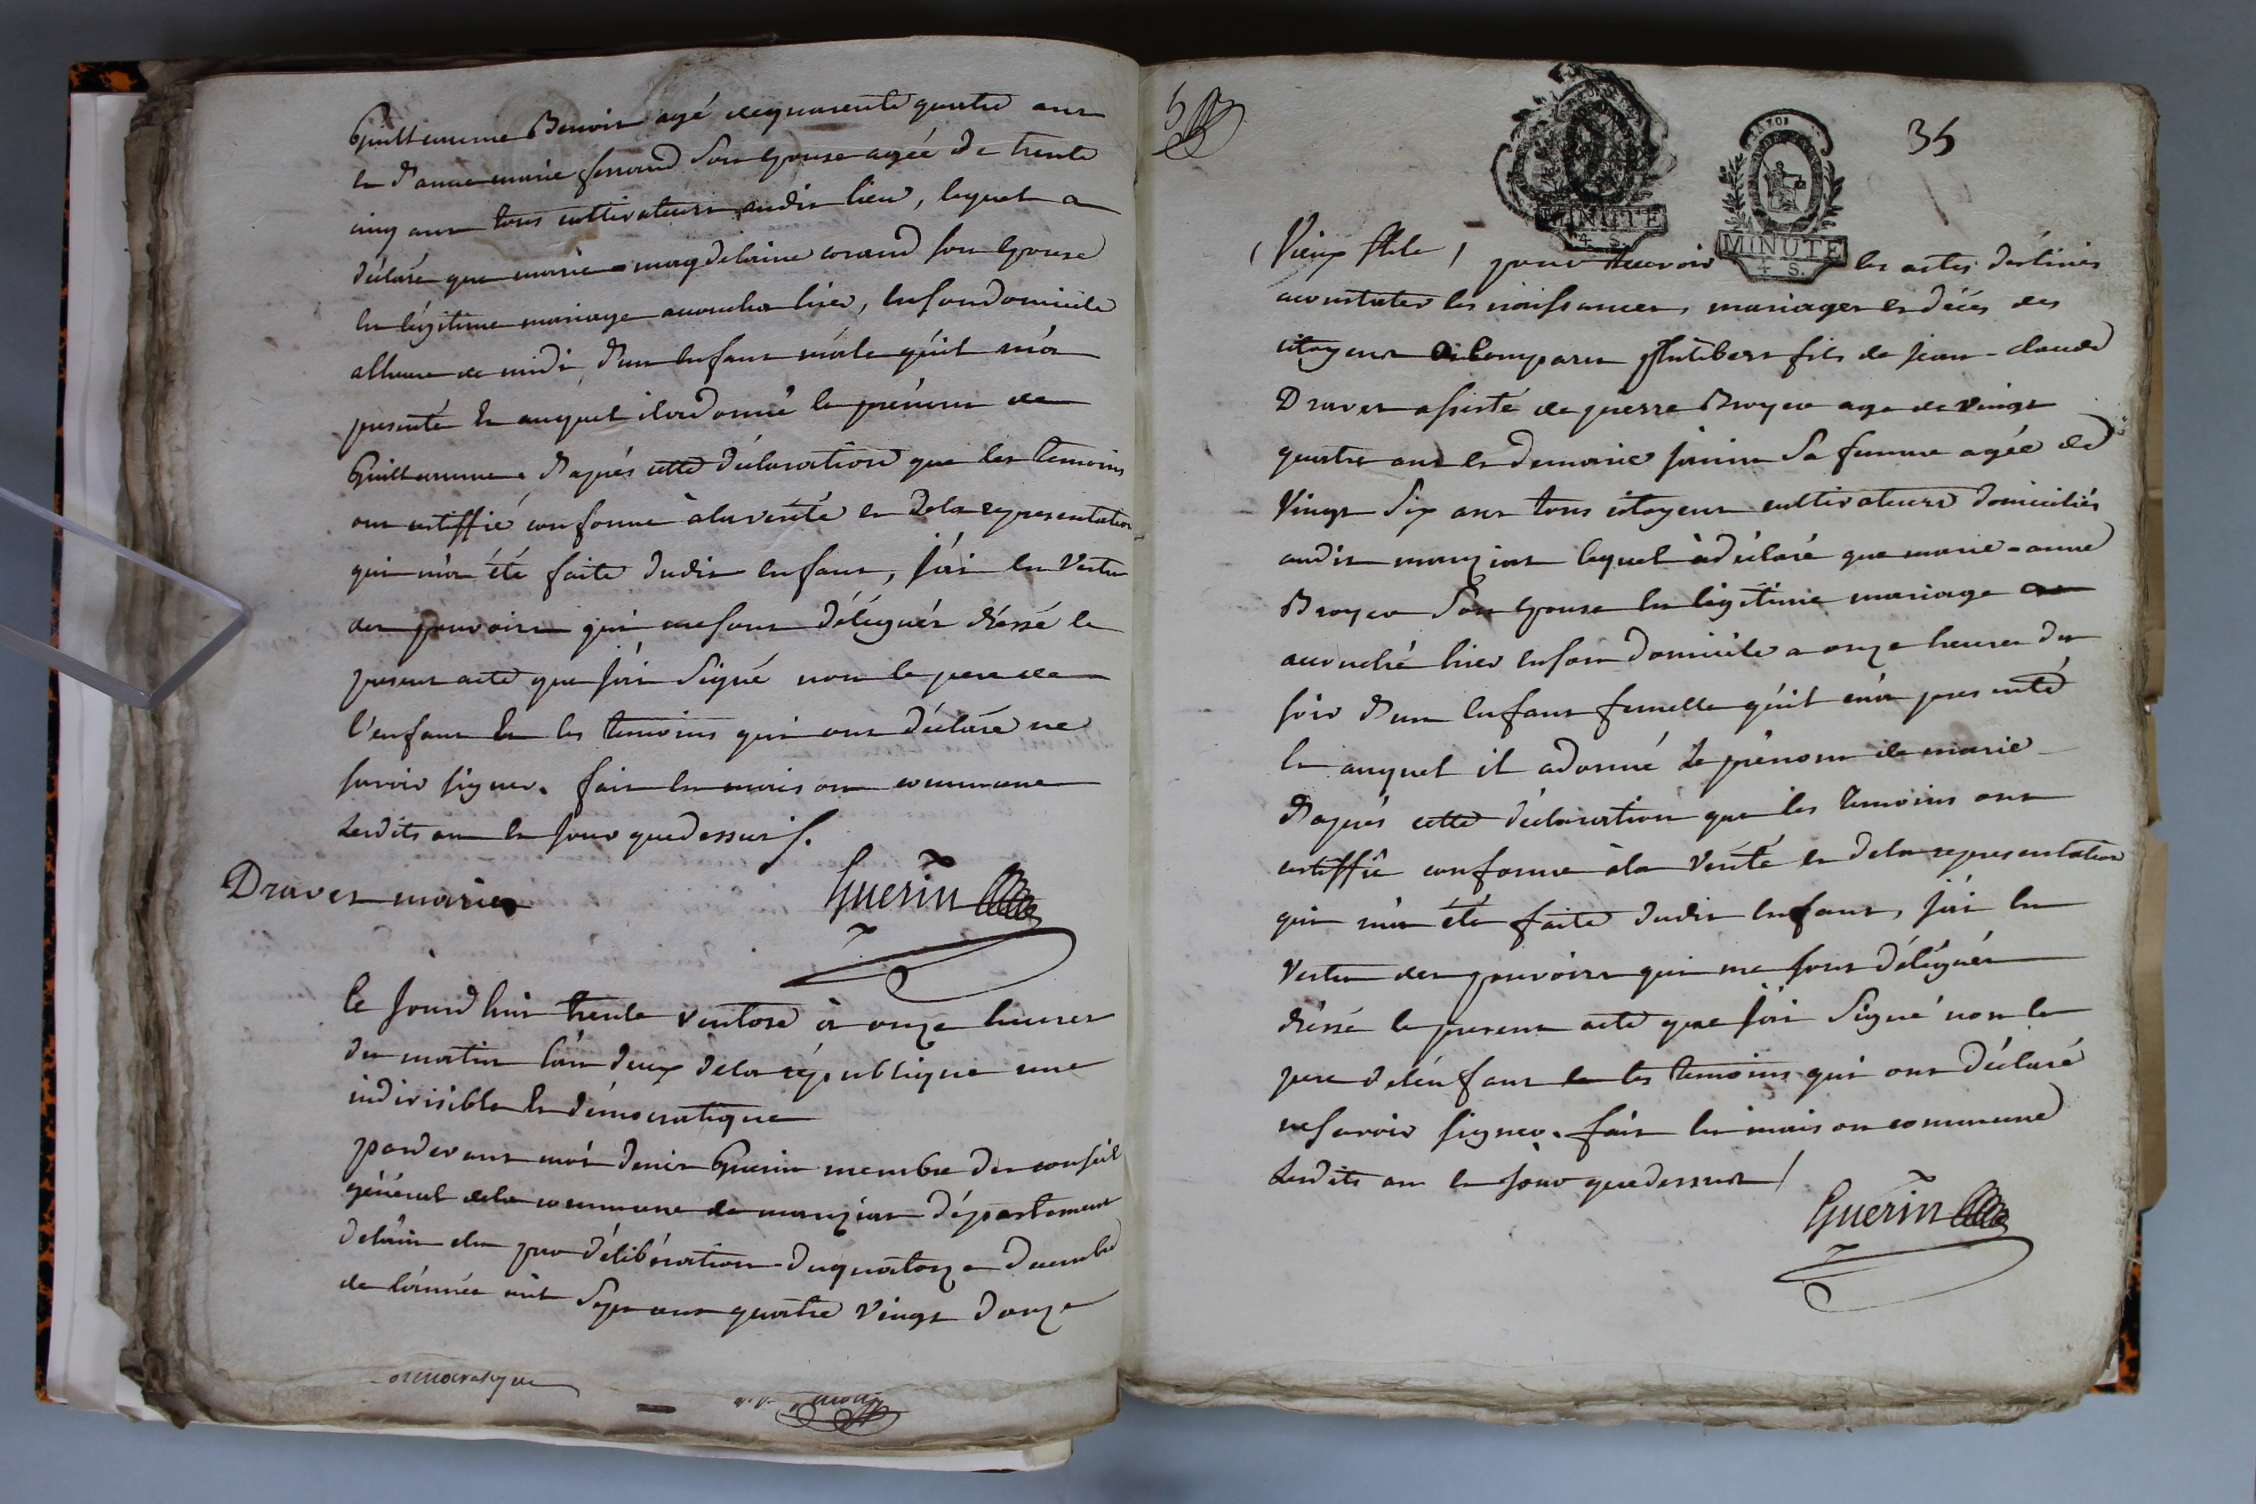 Guillaume Benoit agé de quarente quatre ans
et d'anne marie ferrand son epouse agée de trente
cinq ans tous cultivateurs audit lieu, lequel a
déclaré que marie magdelaine corand son epouse
en légitime mariage accoucha hier, en son domicile
a lheure de midi, d'un enfant mâle quil m'a
presenté et auquel il a donné le prénom de
Guillaume. D'aprés cette déclaration que les temoins
ont certiffié conforme à la verité et de la representation
qui m'a été faite dudit enfant, j'ai en vertu
des pouvoirs qui me sont délégués dréssé le
present acte que j'ai signé non le pere de
l'enfant et les temoins qui ont déclaré ne
savoir signer. fait en maison commune
lesdits an et jour que dessus
Guerin
Dravet marie
Ce jourd'hui trente ventose à onze heures
du matin l'an deux de la république une
indivisible et démocratique
pardevant moi denis Guerin membre du conseil
général de la commune de manziat département
de l'ain elu par délibération du quatorze décembre
de l'année mil sept cent quatre vingt douze
démocratique
35
MINUTE
4. S.
MINUTE
4 S.
(Vieux stile) pour recevoir les actes destinés
a constater les naissances, mariages et décés des
citoyens a comparu philibert fils de jean-claude
Dravet assisté de pierre Broyer age de vingt
quatre ans et de marie janin sa femme agée de
vingt six ans tous citoyens cultivateurs domiciliés
audit manziat lequel à déclaré que marie-anne
Broyer son epouse en légitime mariage a
accouché hier en son domicile a onze heures du
soir d'un enfant femelle quil m'a presenté
et auquel il a donné le prénom de marie
D'aprés cette déclaration que les temoins ont
certiffié conforme à la verité et de la representation
qui m'a été faite dudit enfant, j'ai en
vertu des pouvoirs qui me sont délégués
dréssé le present acte que j'ai signé non le
pere de l'enfant et les temoins qui ont déclaré
ne savoir signer. fait en maison commune
lesdits an et jour que dessus
Guerin